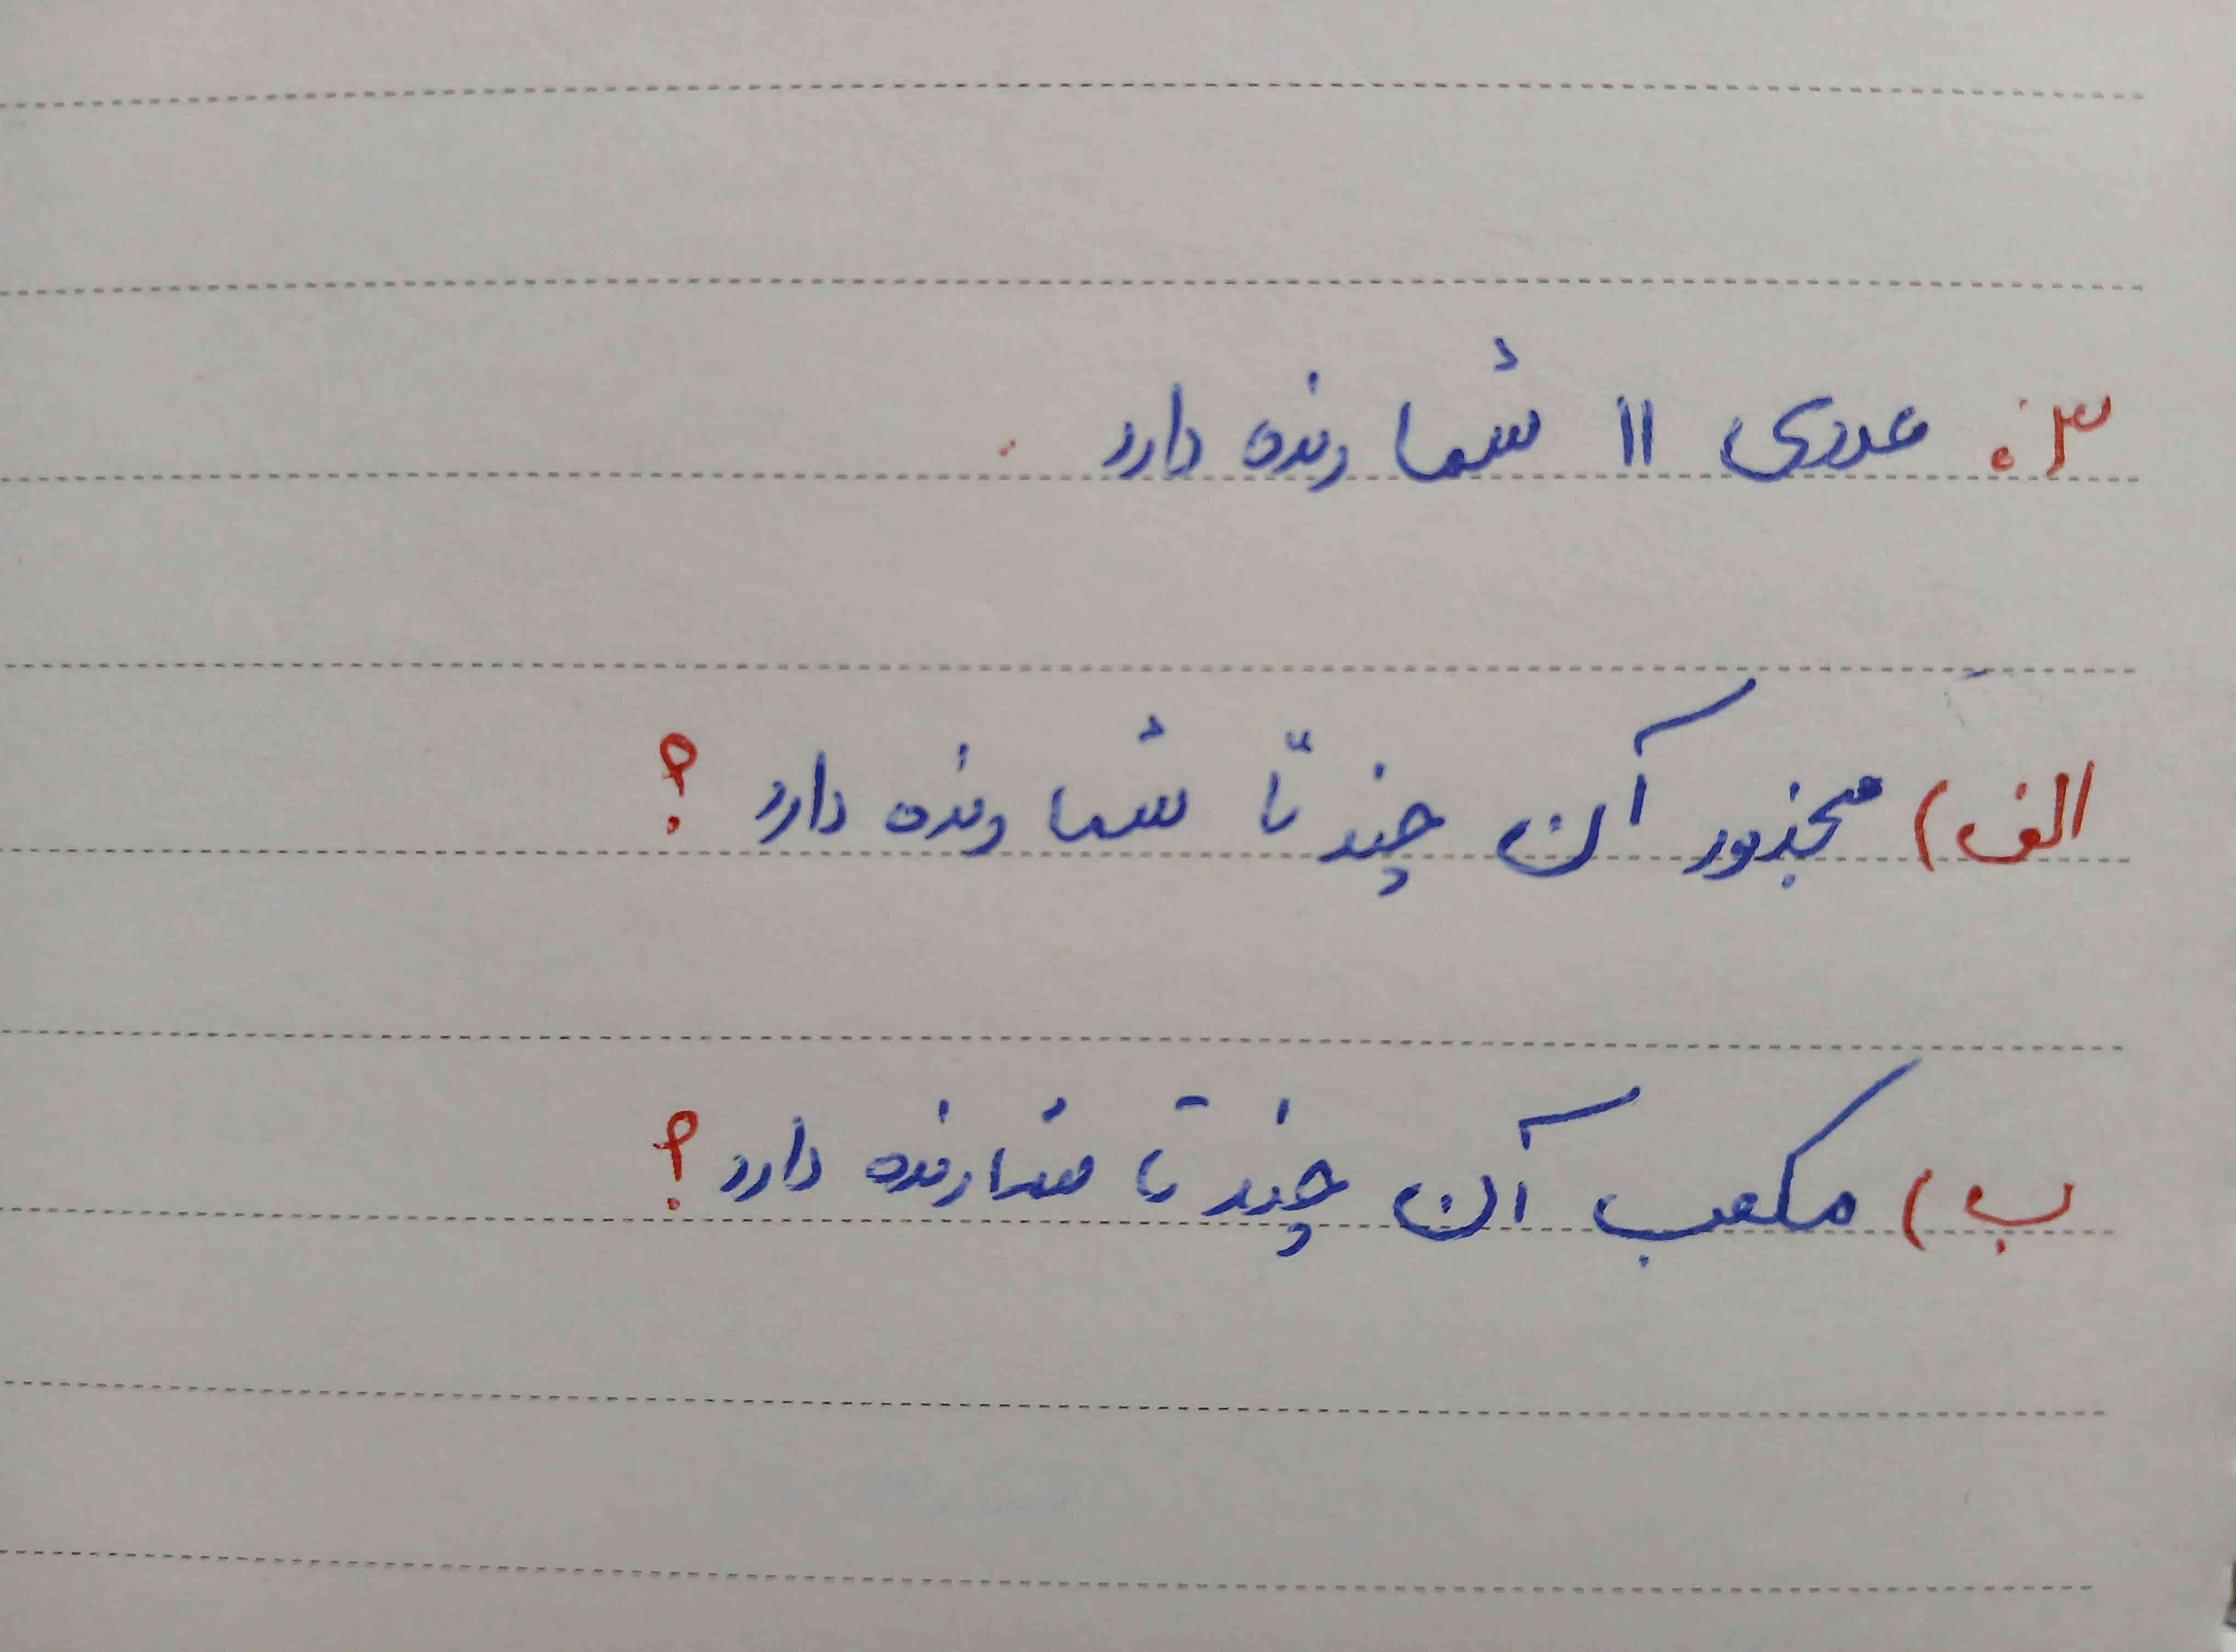 ۳. عددی ۱۱ شمارنده دارد.
الف) مجذور آن چند تا شمارنده دارد؟
ب) مکعب آن چند تا شمارنده دارد؟